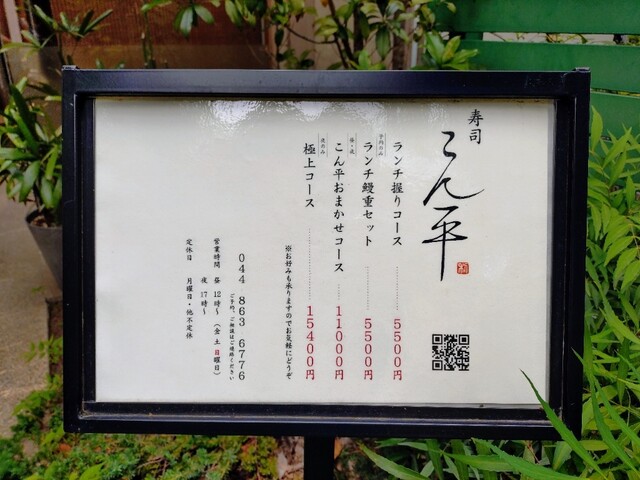 寿司
こん平
ランチ握りコース 5500円
予約のみ
ランチ鰻重セット 5500円
昼・夜
こん平おまかせコース 11000円
夜のみ
極上コース 15400円
※お好みも承りますのでお気軽にどうぞ
044 863 6776
ご予約、ご相談はご連絡ください
営業時間 昼 12時〜 (金 土 日曜日)
夜 17時〜
定休日 月曜日・他不定休